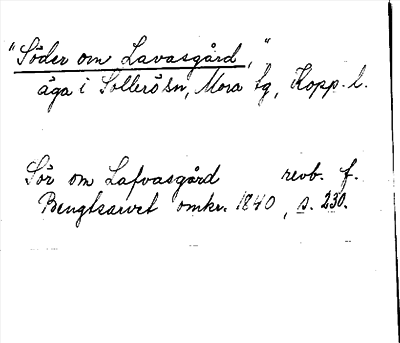 "Söder om Lavasgård,"
äga i Sollerö sn, Mora tg, Kopp. l.
Sör om Lafvasgård revb. f.
Bengtsarvet omkr. 1840, s. 230.